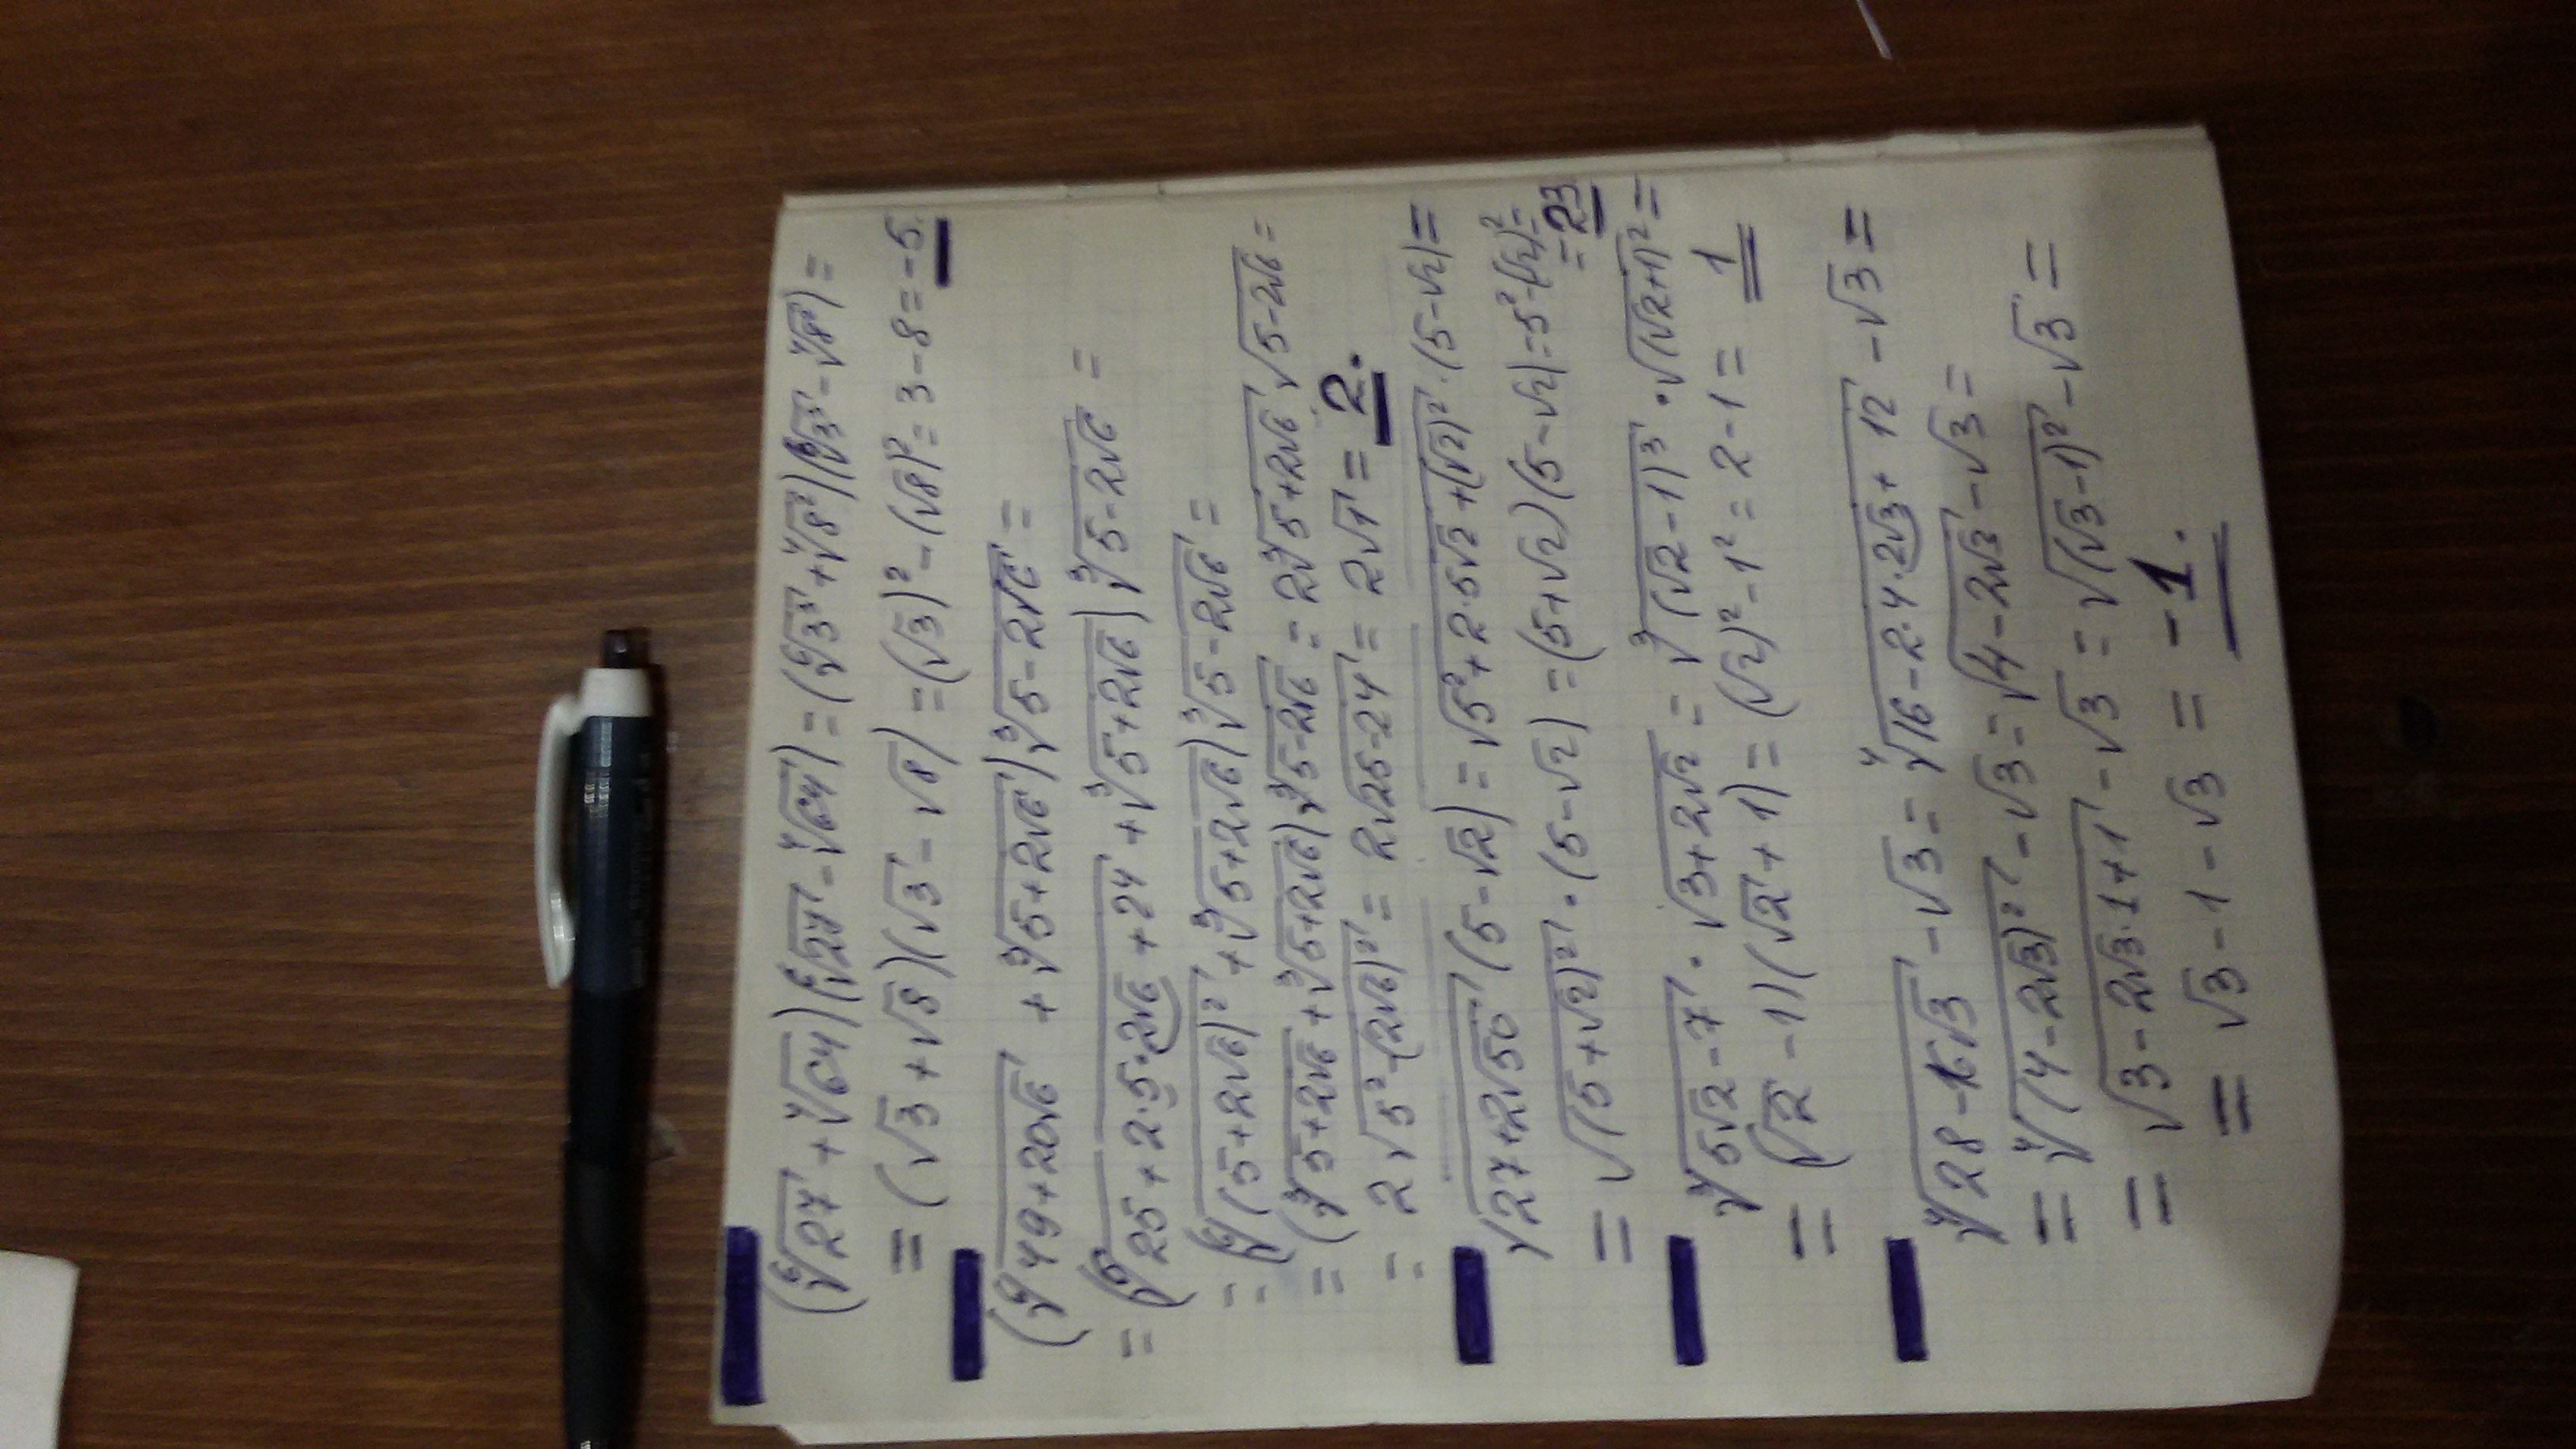 (⁶√27 + ⁴√64)(⁶√27 - ⁴√64) = (⁶√3³ + ⁴√8²)(⁶√3³ - ⁴√8²) =
= (√3 + √8)(√3 - √8) = (√3)² - (√8)² = 3 - 8 = -5.
(⁶√49+20√6 + ³√5+2√6) ³√5-2√6 =
= (⁶√25+2·5·2√6+24 + ³√5+2√6) ³√5-2√6 =
= (⁶√(5+2√6)² + ³√5+2√6) ³√5-2√6 =
= (³√5+2√6 + ³√5+2√6) ³√5-2√6 = 2 ³√5+2√6 · √5-2√6 =
= 2√5²-(2√6)² = 2√25-24 = 2√1 = 2.
√27+2√50 (5-√2) = √5²+2·5√2+(√2)² · (5-√2) =
= √(5+√2)² · (5-√2) = (5+√2)(5-√2) = 5²-(√2)² =
= 23
³√5√2-7 · √3+2√2 = ³√(√2-1)³ · √(√2+1)² =
= (√2-1)(√2+1) = (√2)²-1² = 2-1 = 1
⁴√28-16√3 - √3 = ⁴√16-2·4·2√3+12 - √3 =
= ⁴√(4-2√3)² - √3 = √4-2√3 - √3 =
= √3-2√3·1+1 - √3 = √(√3-1)² - √3 =
= √3-1-√3 = -1.